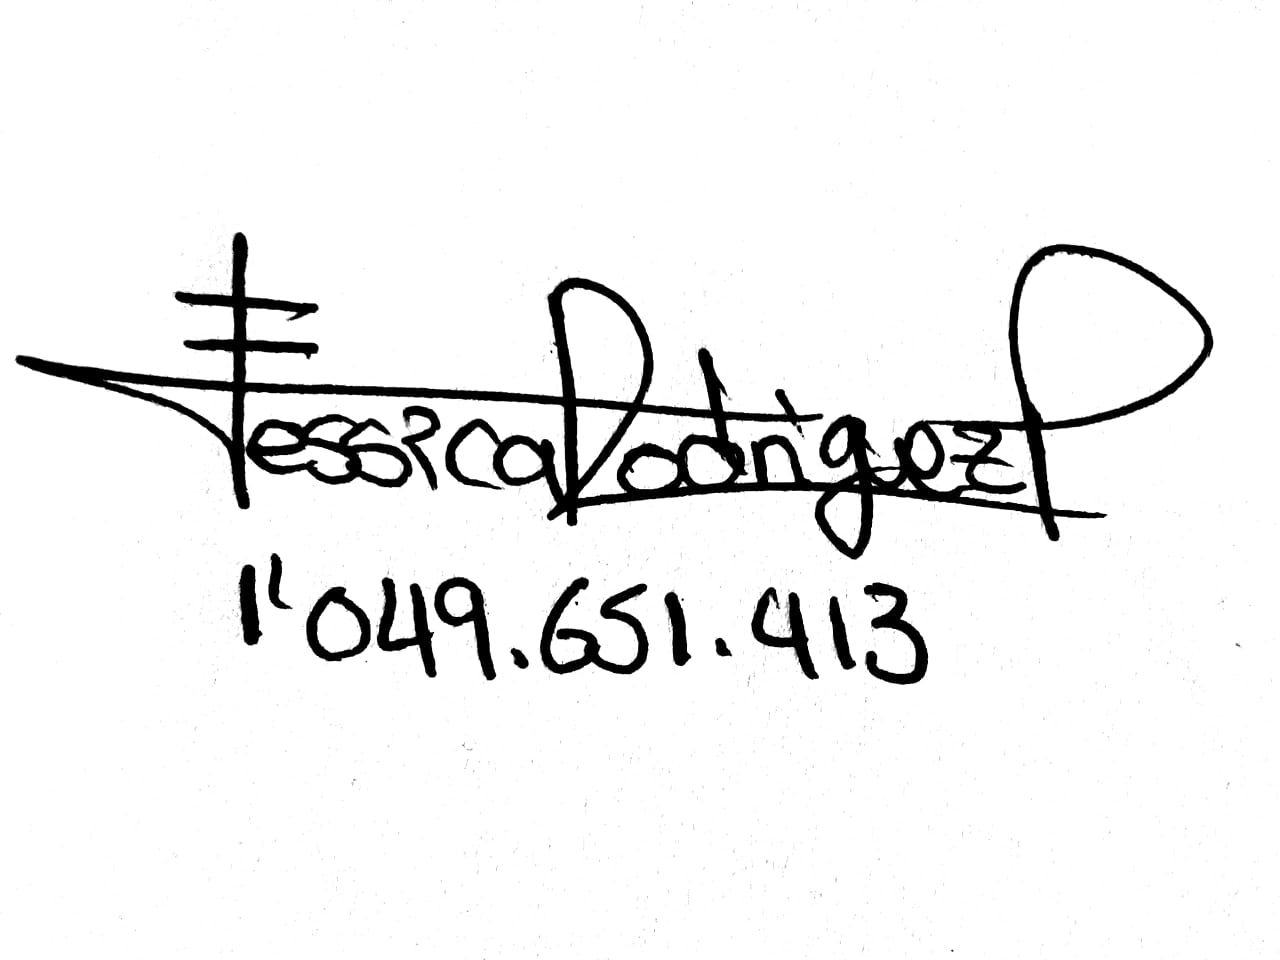 Jessica Rodríguez P
1'049.651.413